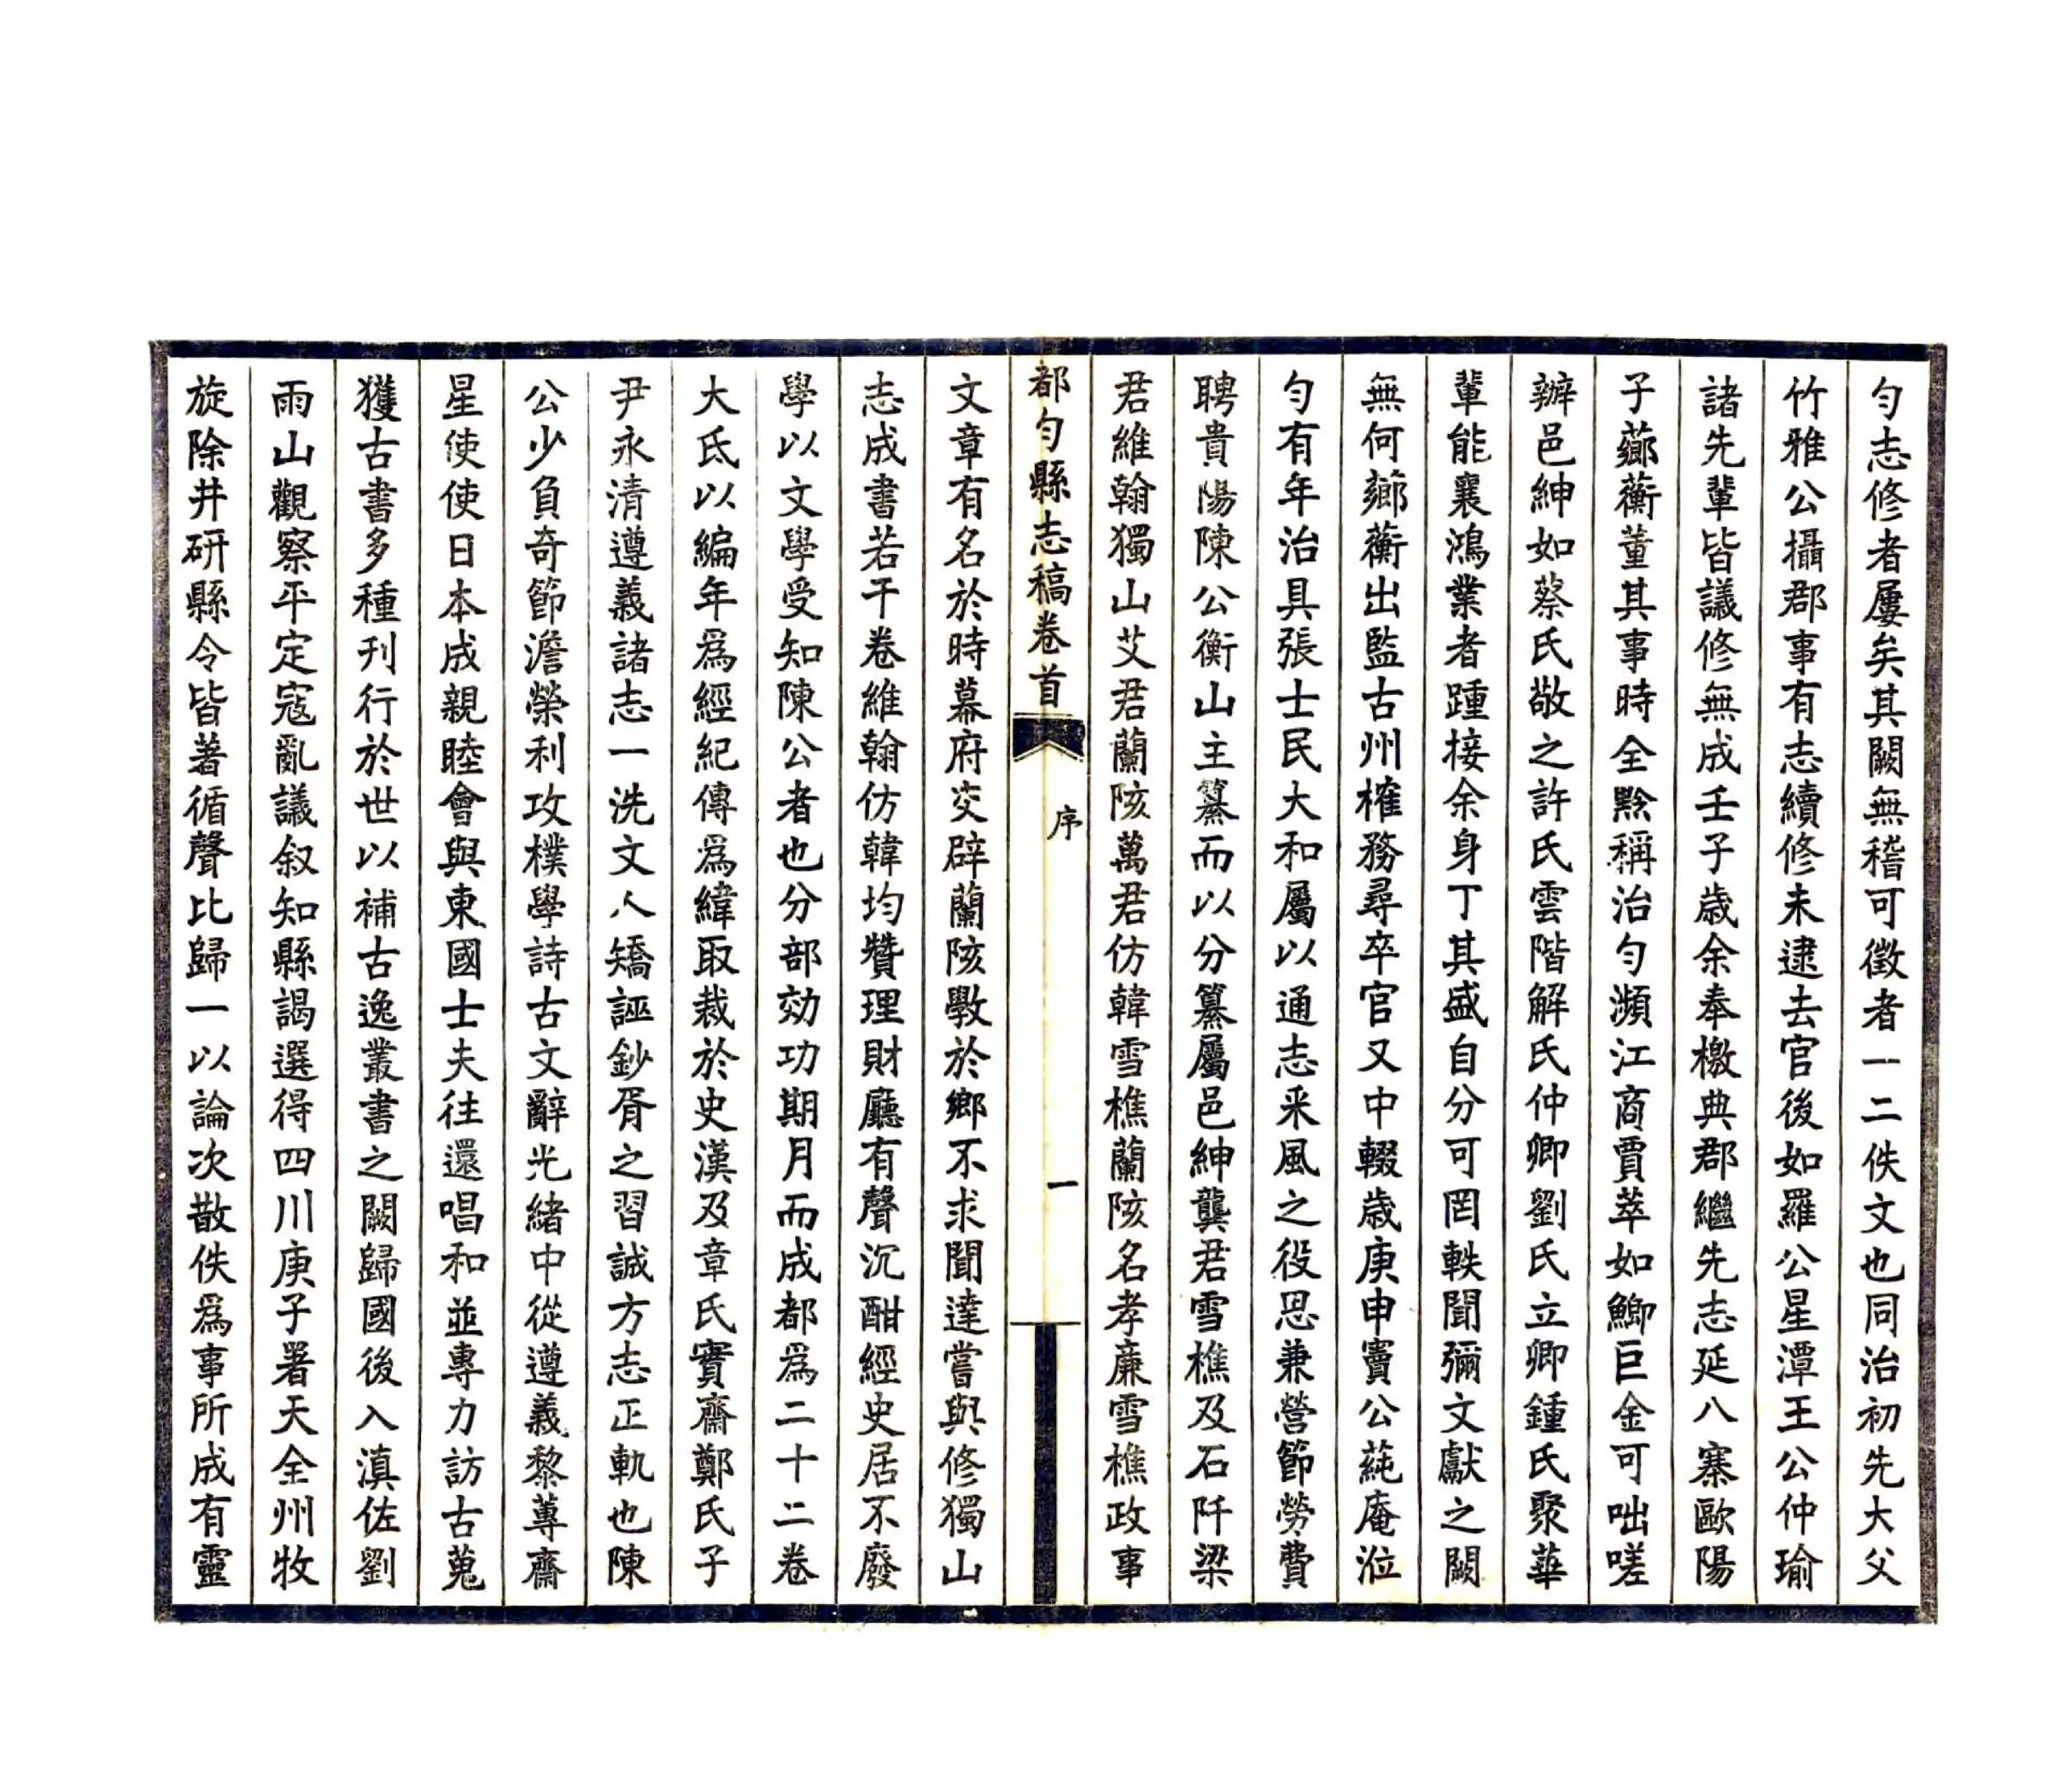 匀志修者屢矣其闕無稽可徵者一二佚文也同治初先大父
竹雅公攝郡事有志續修未逮去官後如羅公星潭王公仲瑜
諸先輩皆議修無成壬子歲余奉檄典郡繼先志延八寨歐陽
子薌蘅董其事時全黔稱治匀瀕江商賈萃如鯽巨金可咄嗟
辦邑紳如蔡氏敬之許氏雲階解氏仲卿劉氏立卿鍾氏聚華
輩能襄鴻業者踵接余身丁其盛自分可罔軼聞彌文獻之闕
無何薌蘅出監古州榷務尋卒官又中輟歲庚申竇公蒓庵涖
匀有年治具張士民大和屬以通志釆風之役思兼營節勞費
聘貴陽陳公衡山主纂而以分纂屬邑紳龔君雪樵及石阡梁
君維翰獨山艾君蘭陔萬君仿韓雪樵蘭陔名孝廉雪樵政事
都匀縣志稿卷首
序
一
文章有名於時幕府交辟蘭陔斆於鄉不求聞達嘗與修獨山
志成書若干卷維翰仿韓均贊理財廳有聲沉酣經史居不廢
學以文學受知陳公者也分部効功期月而成都爲二十二卷
大氐以編年爲經紀傳爲緯取裁於史漢及章氏實齋鄭氏子
尹永清遵義諸志一洗文人矯誣鈔胥之習誠方志正軌也陳
公少負奇節澹榮利攻樸學詩古文辭光緒中從遵義黎蓴齋
星使使日本成親睦會與東國士夫往還唱和並專力訪古蒐
獲古書多種刊行於世以補古逸叢書之闕歸國後入滇佐劉
雨山觀察平定寇亂議叙知縣謁選得四川庚子署天全州牧
旋除井研縣令皆著循聲比歸一以論次散佚爲事所成有靈